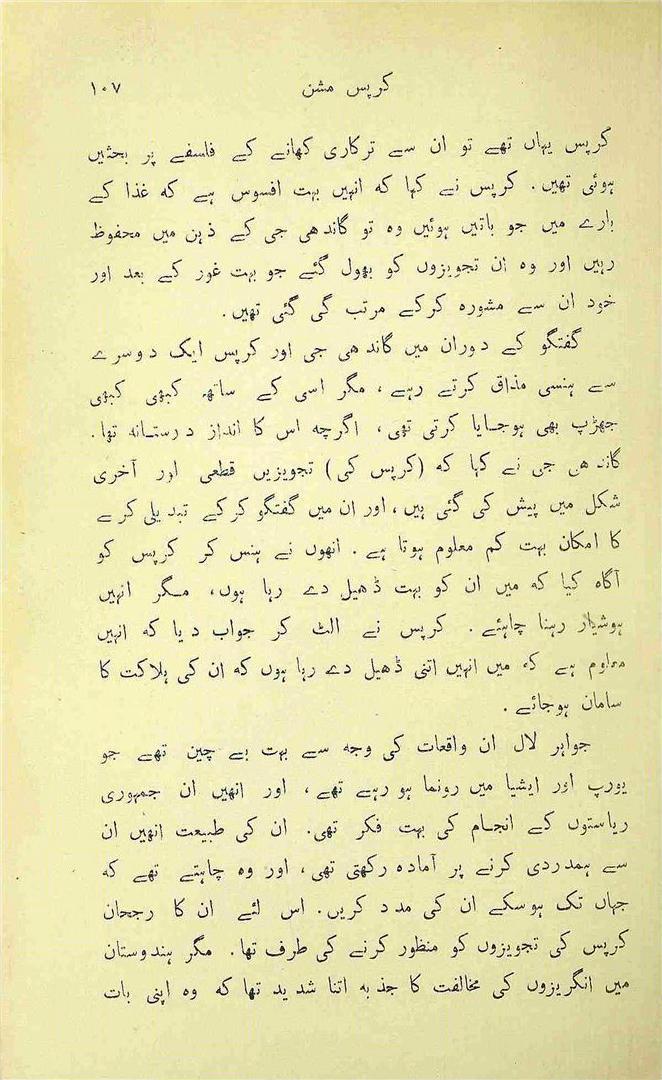 کرپس مشن ۱۰۷
کرپس یہاں تھے تو ان سے ترکاری کھانے کے فلسفے پر بحثیں
ہوئی تھیں. کرپس نے کہا کہ انہیں بہت افسوس ہے کہ غذا کے
بارے میں جو باتیں ہوئیں وہ تو گاندھی جی کے ذہن میں محفوظ
رہیں اور وہ ان تجویزوں کو بھول گئے جو بہت غور کے بعد اور
خود ان سے مشورہ کرکے مرتب گی گئی تھیں.
گفتگو کے دوران میں گاندھی جی اور کرپس ایک دوسرے
سے ہنسی مذاق کرتے رہے، مگر اسی کے ساتھ کبھی کبھی
جھڑپ بھی ہوجایا کرتی تھی، اگرچہ اس کا انداز درستانہ تھا.
گاندھی جی نے کہا کہ (کرپس کی) تجویزیں قطعی اور آخری
شکل میں پیش کی گئی ہیں، اور ان میں گفتگو کرکے تبدیلی کرے
کا امکان بہت کم معلوم ہوتا ہے. انھوں نے ہنس کر کرپس کو
آگاہ کیا کہ میں ان کو بہت ڈھیل دے رہا ہوں، مگر انہیں
ہوشیار رہنا چاہئے. کرپس نے الٹ کر جواب دیا کہ انہیں
معلوم ہے کہ میں انہیں اتنی ڈھیل دے رہا ہوں کہ ان کی ہلاکت کا
سامان ہوجائے.
جواہر لال ان واقعات کی وجہ سے بہت بے چین تھے جو
یورپ اور ایشیا میں رونما ہو رہے تھے، اور انھیں ان جمہوری
ریاستوں کے انجام کی بہت فکر تھی. ان کی طبیعت انھیں ان
سے ہمدردی کرنے پر آمادہ رکھتی تھی، اور وہ چاہتے تھے کہ
جہاں تک ہوسکے ان کی مدد کریں. اس لئے ان کا رجحان
کرپس کی تجویزوں کو منظور کرنے کی طرف تھا. مگر ہندوستان
میں انگریزوں کی مخالفت کا جذبہ اتنا شدید تھا کہ وہ اپنی بات